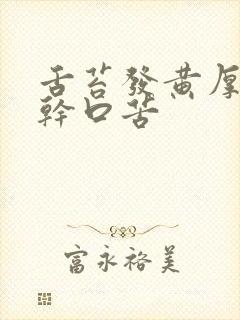 舌苔發黃厚
幹口苦
富永裕美